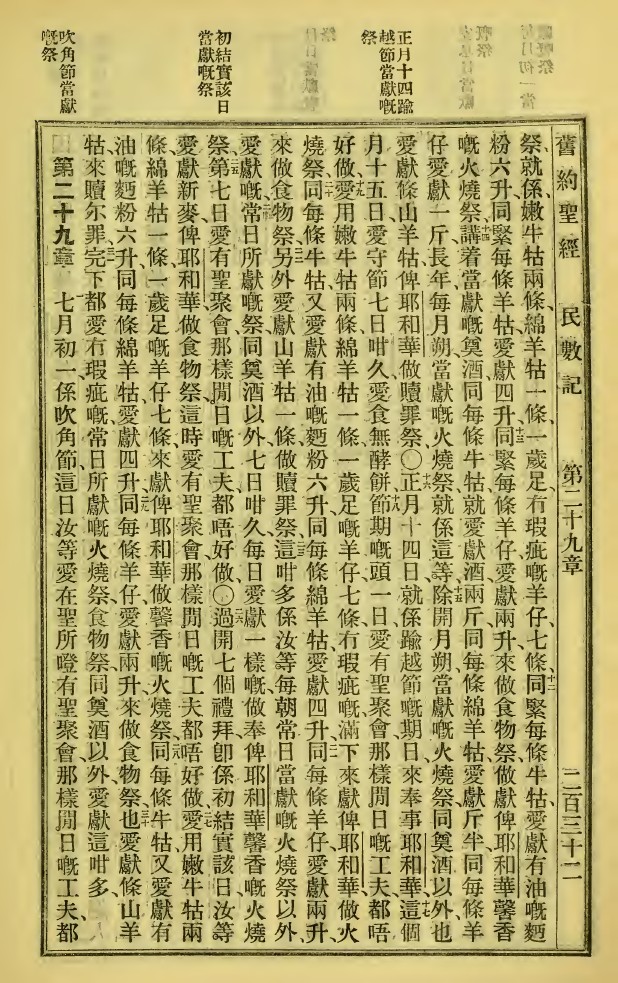 舊約聖經　民數記　第二十九章　二百三十二
正月十四踰
越節當獻嘅
祭
初結實該日
當獻嘅祭
吹角節當獻
嘅祭
祭、就係嫩牛牯兩條、綿羊牯一條、一歲足冇瑕疵嘅羊仔七條、十二同緊每條牛牯、愛獻有油嘅麵
粉六升、同緊每條羊牯、愛獻四升、十三同緊每條羊仔、愛獻兩升、來做食物祭、做獻俾耶和華馨香
嘅火燒祭、十四講着當獻嘅奠酒、同每條牛牯就愛獻酒兩斤、同每條綿羊牯、愛獻斤半、同每條羊
仔愛獻一斤、長年每月朔、當獻嘅火燒祭、就係這等、十五除開月朔當獻嘅火燒祭、同奠酒以外、也
愛獻條山羊牯、俾耶和華做贖罪祭、〇十六正月十四日、就係踰越節嘅期日、來奉事耶和華、十七這個
月十五日愛守節、七日咁久愛食無酵餅、十八節期嘅頭一日愛有聖聚會、那樣閒日嘅工夫都唔
好做、十九愛用嫩牛牯兩條、綿羊牯一條、一歲足嘅羊仔七條、冇瑕疵嘅滿下來獻俾耶和華、做火
燒祭、二十同每條牛牯、又愛獻有油嘅麵粉六升、同每條綿羊牯、愛獻四升、二一同每條羊仔、愛獻兩升、
來做食物祭、二二另外愛獻山羊牯一條做贖罪祭、二三這咁多係汝等每朝常日當獻嘅火燒祭以外、
愛獻嘅、二四常日所獻嘅祭、同奠酒以外、七日咁久每日愛獻一樣嘅、做奉俾耶和華馨香嘅火燒
祭、二五第七日愛有聖聚會、那樣閒日嘅工夫都唔好做、〇二六過開七個禮拜、卽係初結實該日、汝等
愛獻新麥俾耶和華做食物祭、這時愛有聖聚會、那樣閒日嘅工夫都唔好做、二七愛用嫩牛牯兩
條、綿羊牯一條、一歲足嘅羊仔七條、來獻俾耶和華、做馨香嘅火燒祭、二八同每條牛牯、又愛獻有
油嘅麵粉六升、同每條綿羊牯、愛獻四升、二九同每條羊仔、愛獻兩升、來做食物祭、三十也愛獻條山羊
牯、來贖尔罪、三一完下都愛冇瑕疵嘅、常日所獻嘅火燒祭、食物祭、同奠酒以外、愛獻這咁多、
第二十九章　一七月初一、係吹角節、這日汝等愛在聖所嶝有聖聚會、那樣閒日嘅工夫都